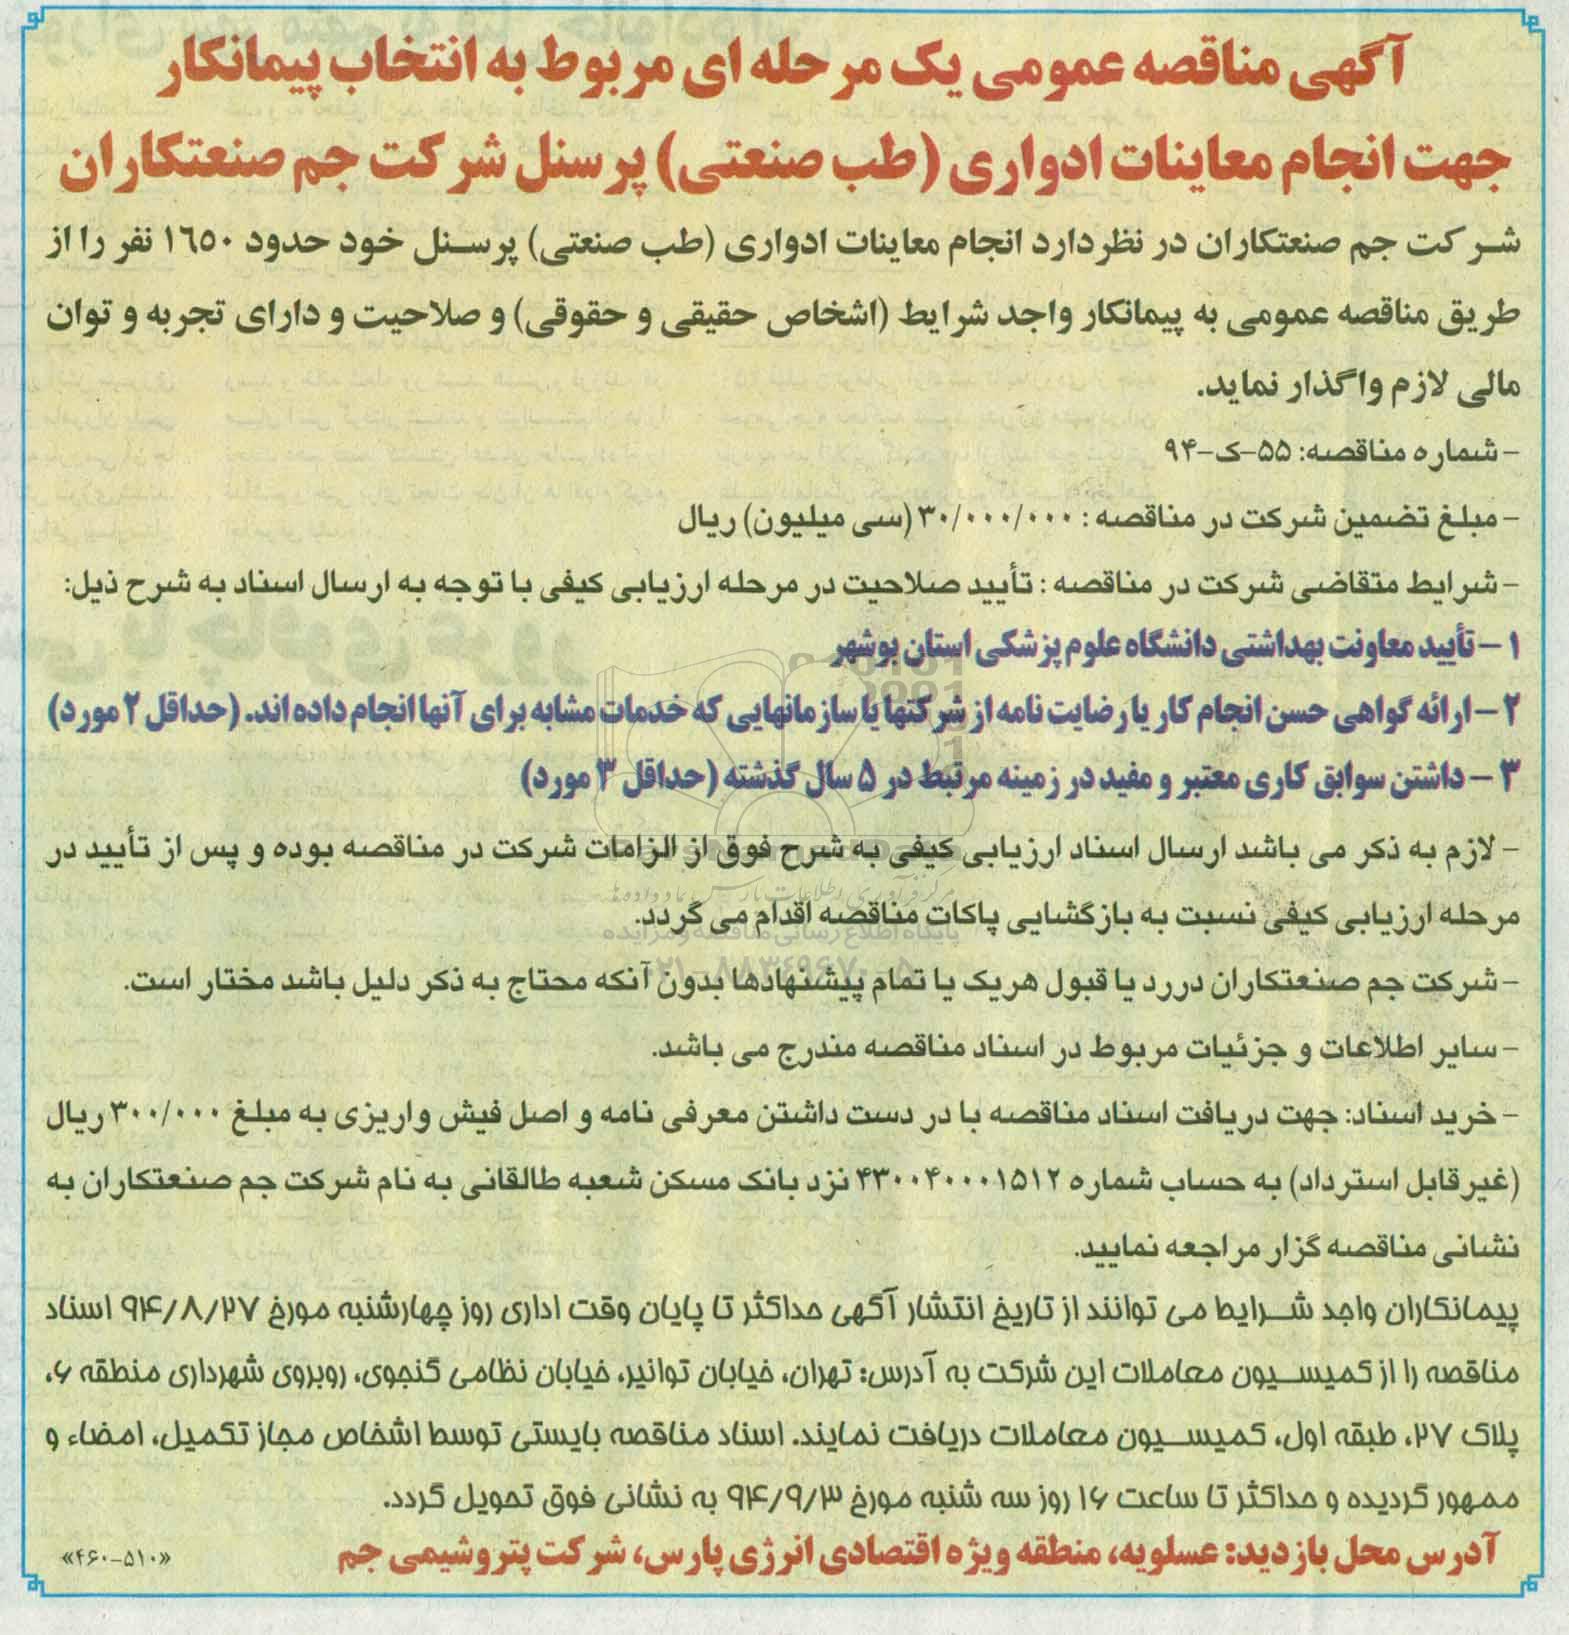 آگهی مناقصه عمومی یک مرحله ای مربوط به انتخاب پیمانکار
جهت انجام معاینات ادواری (طب صنعتی) پرسنل شرکت جم صنعتکاران
شرکت جم صنعتکاران در نظر دارد انجام معاینات ادواری (طب صنعتی) پرسنل خود حدود ١٦٥٠ نفر را از
طریق مناقصه عمومی به پیمانکار واجد شرایط (اشخاص حقیقی و حقوقی) و صلاحیت و دارای تجربه و توان
مالی لازم واگذار نماید.
- شماره مناقصه: ۵۵-ک-۹۴
- مبلغ تضمین شرکت در مناقصه : ۳۰/۰۰۰/۰۰۰ (سی میلیون) ریال
- شرایط متقاضی شرکت در مناقصه : تأیید صلاحیت در مرحله ارزیابی کیفی با توجه به ارسال اسناد به شرح ذیل:
۱ - تأیید معاونت بهداشتی دانشگاه علوم پزشکی استان بوشهر
۲ - ارائه گواهی حسن انجام کار یا رضایت نامه از شرکتها یا سازمانهایی که خدمات مشابه برای آنها انجام داده اند. (حداقل ۲ مورد)
۳ - داشتن سوابق کاری معتبر و مفید در زمینه مرتبط در ۵ سال گذشته (حداقل ۳ مورد)
- لازم به ذکر می باشد ارسال اسناد ارزیابی کیفی به شرح فوق از الزامات شرکت در مناقصه بوده و پس از تأیید در
مرحله ارزیابی کیفی نسبت به بازگشایی پاکات مناقصه اقدام می گردد.
- شرکت جم صنعتکاران دررد یا قبول هریک یا تمام پیشنهادها بدون آنکه محتاج به ذکر دلیل باشد مختار است.
- سایر اطلاعات و جزئیات مربوط در اسناد مناقصه مندرج می باشد.
- خرید اسناد: جهت دریافت اسناد مناقصه با در دست داشتن معرفی نامه و اصل فیش واریزی به مبلغ ۳۰۰/۰۰۰ ریال
(غیرقابل استرداد) به حساب شماره ۴۳۰۰۴۰۰۰۱۵۱۲ نزد بانک مسکن شعبه طالقانی به نام شرکت جم صنعتکاران به
نشانی مناقصه گزار مراجعه نمایید.
پیمانکاران واجد شرایط می توانند از تاریخ انتشار آگهی حداکثر تا پایان وقت اداری روز چهارشنبه مورخ ۹۴/۸/۲۷ اسناد
مناقصه را از کمیسیون معاملات این شرکت به آدرس: تهران، خیابان توانیر، خیابان نظامی گنجوی، روبروی شهرداری منطقه ۶،
پلاک ۲۷، طبقه اول، کمیسیون معاملات دریافت نمایند. اسناد مناقصه بایستی توسط اشخاص مجاز تکمیل، امضاء و
ممهور گردیده و حداکثر تا ساعت ۱۶ روز سه شنبه مورخ ۹۴/۹/۳ به نشانی فوق تحویل گردد.
آدرس محل بازدید: عسلویه، منطقه ویژه اقتصادی انرژی پارس، شرکت پتروشیمی جم
«۴۶۰-۵۱۰»
پایگاه اطلاع رسانی مناقصه و مزایده